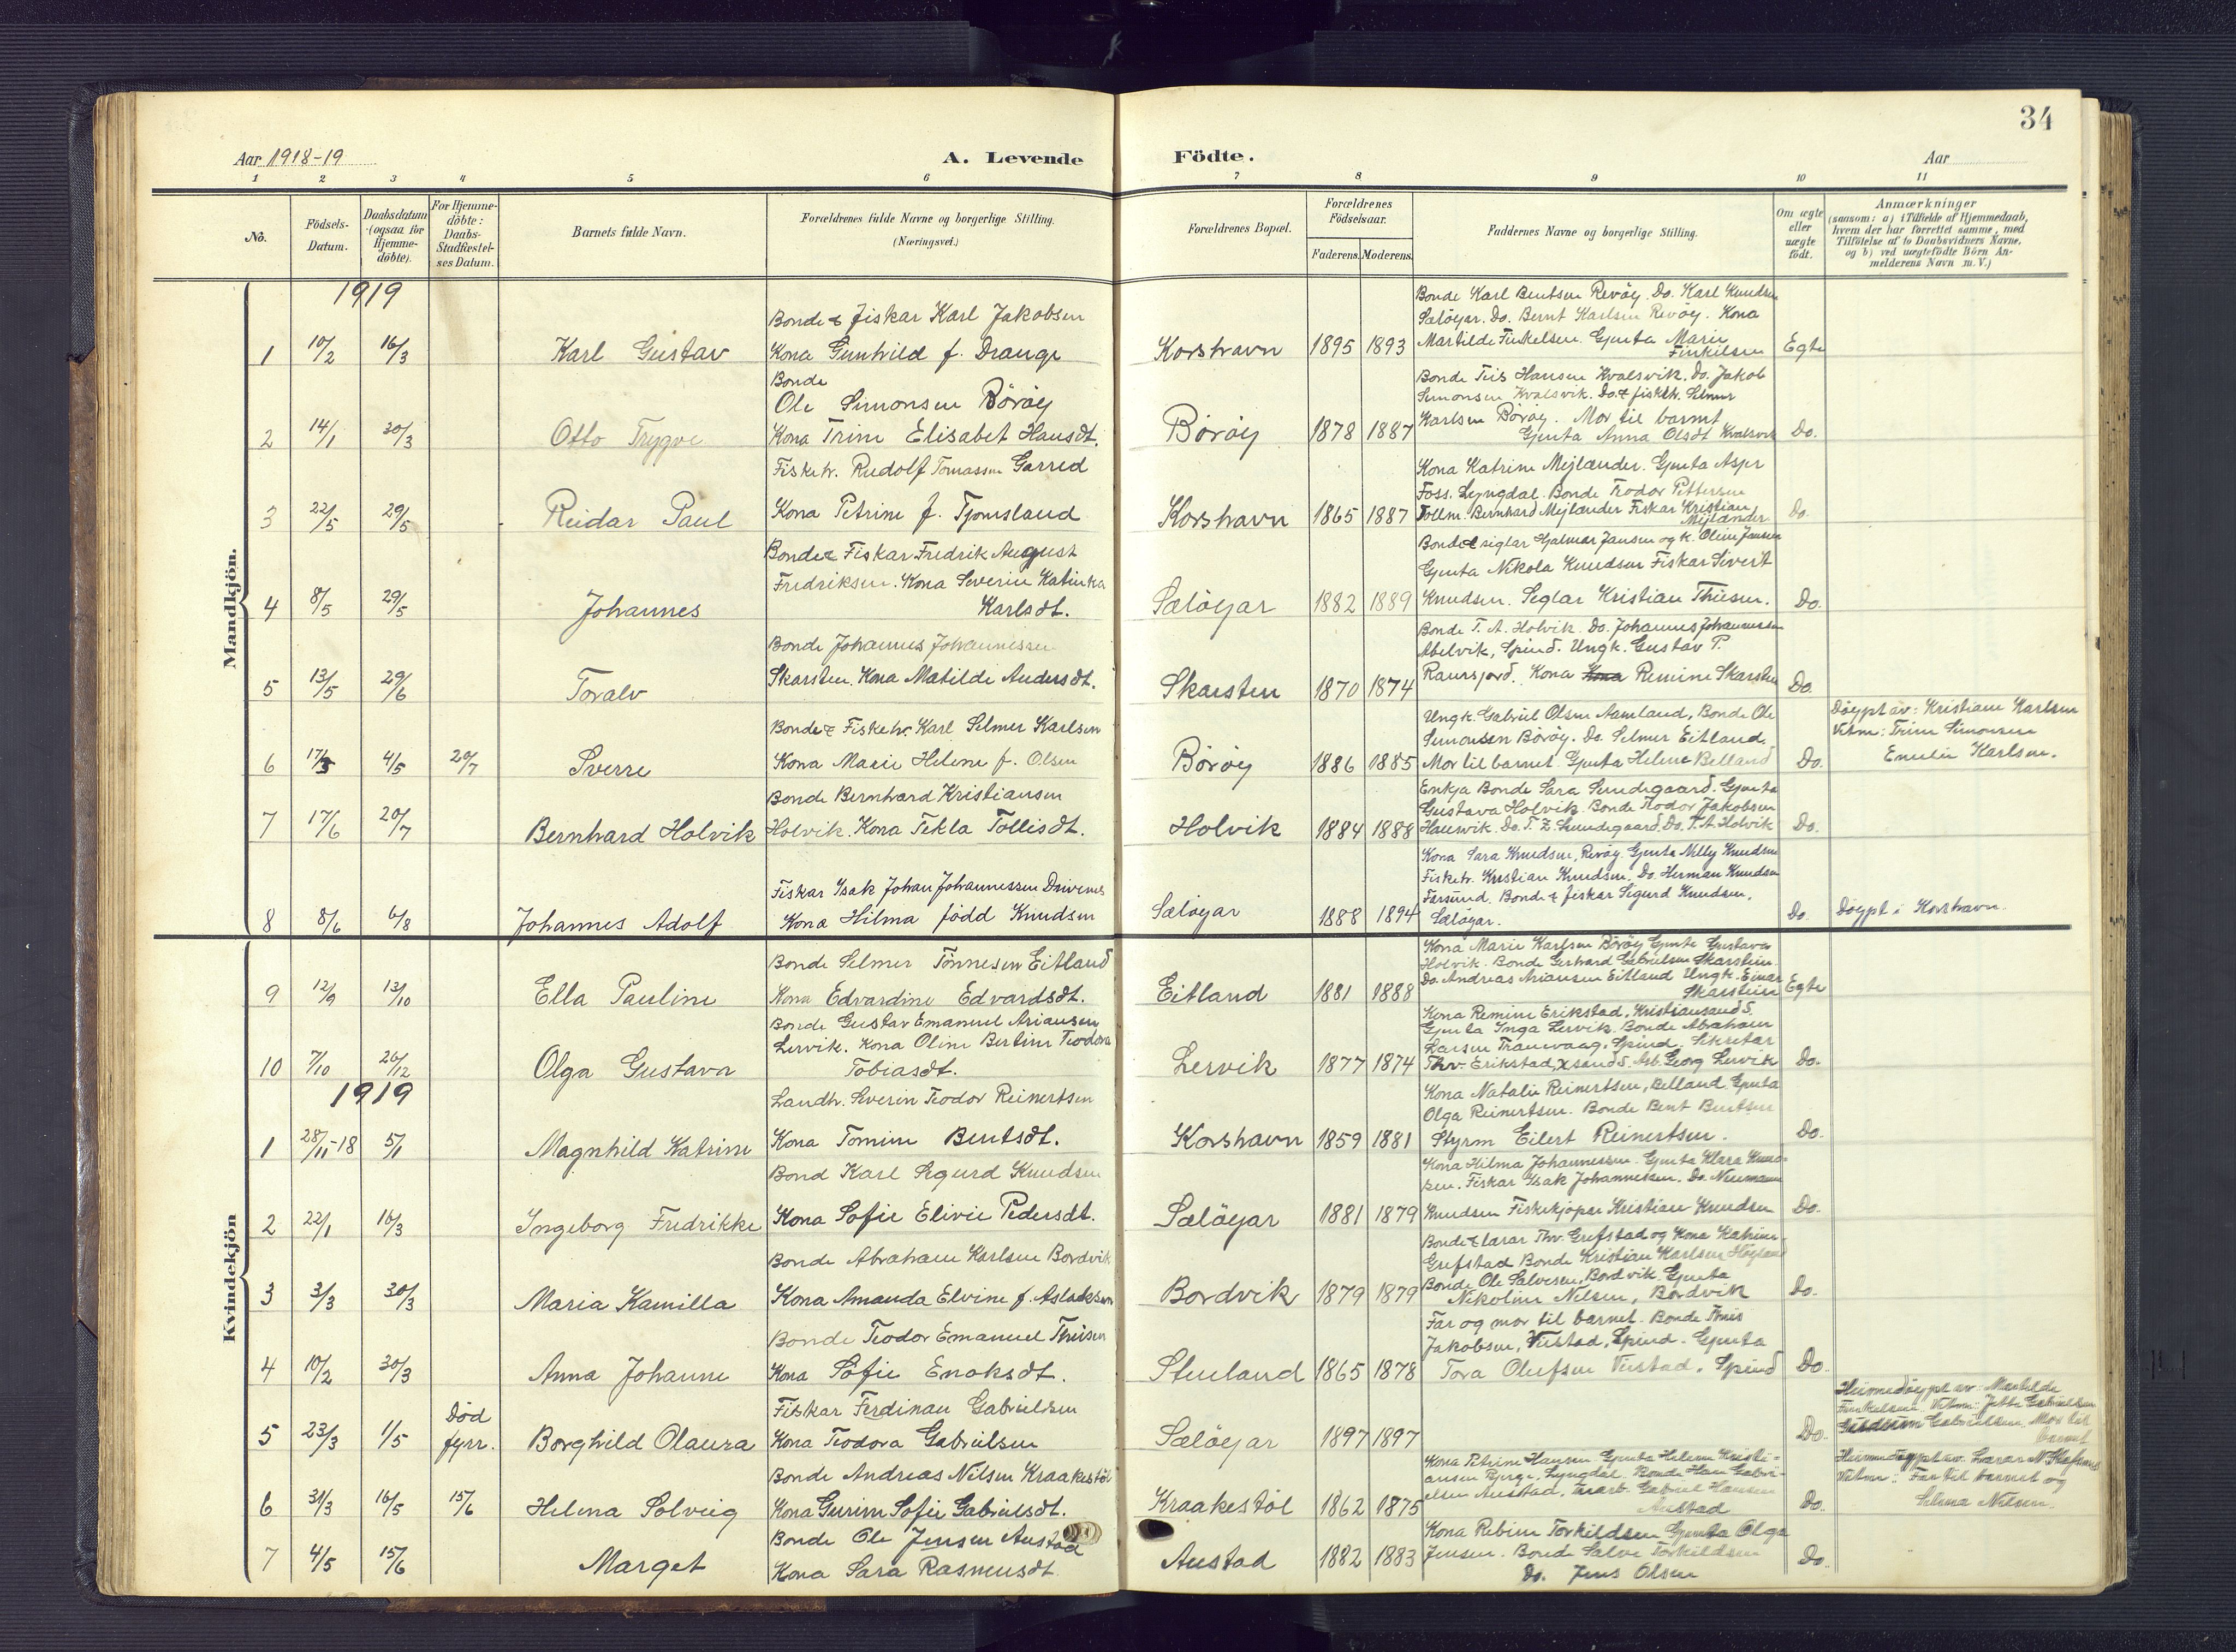 34
Aar 1918-19
A. Levende Födte.
Aar
1 2 3 4 5 6 7 8 9 10 11
No.
Födsels-Datum.
Daabsdatum (ogsaa for Hjemme-döbte).
For Hjemme-döbte: Daabs-Stadfæstel-ses Datum.
Barnets fulde Navn.
Forældrenes fulde Navne og borgerlige Stilling.
(Næringsvei.)
Forældrenes Bopæl.
Forældrenes Födselsaar.
Faderens. Moderens.
Faddernes Navne og borgerlige Stilling.
Om ægte eller uægte födt.
Anmærkninger
(saasom: a) i Tilfælde af Hjemmedaab,
hvem der har forrettet samme, med
Tilföielse af to Daabsvidners Navne,
og b) ved uægtefödte Börn An-
melderens Navn m. V.)
Mandkjön.
1919
1 10/2 16/3 Karl Gustav
Bonde & fiskar Karl Jakobsen
Kona Gunhild f. Drange
Korshavn 1895 1893
Bonde Karl Bentsen Revöy. Do. Karl Knudsen
Sælöyar. Do. Bernt Karlsen Revöy. Kona
Martilde Finkelsen. Gjenta Marie
Finkilsen
Egte
2 14/1 30/3 Otto Trygve
Bonde
Ole Simonsen Böröy
Kona Trine Elisabet Hansdt.
Böröy 1878 1887
Bonde Teis Hansen Kvalsvik. Do. Jakob
Simonsen Kvalsvik. Do. & fisketr. Selmer
Karlsen Böröy. Mor til barnet
Gjenta Anna Olsdt Kvalsvik
Do.
3 22/5 29/5 Reidar Paul
Fisketr. Rudolf Tomassen Garred
Kona Petrine f. Tjomsland
Korshavn 1865 1887
Kona Katrine Mejlænder. Gjenta Aspr
Foss. Lyngdal. Bonde Teodor Pettersen
Tollm. Bernhard Mejlænder Fiskar Kristian
Mejlænder
Do.
4 8/5 29/5 Johannes
Bonde & Fiskar Fredrik August
Fredriksen. Kona Severine Katinka
Karlsdt.
Sælöyar 1882 1889
Bonde & siglar Hjalmar Jansen og k. Oline Jansen
Gjenta Nikola Knudsen Fiskar Sivert
Knudsen. Seglar Kristian Thiesen.
Do.
5 13/5 29/6 Toralv
Bonde Johannes Johannessen
Skarsten. Kona Matilde Andersdt.
Skarsten 1870 1874
Bonde T. A. Holvik. Do. Johannes Johannessen
Abelvik, Spind. Ungk. Gustav P.
Kona Remine Skarsten
Do.
6 17/3 4/5 20/7 Sverre
Bonde & Fisketr. Karl Selmer Karlsen
Kona Marie Helene f. Olsen
Böröy 1886 1885
Ungk. Gabriel Olsen Aamland, Bonde Ole
Simonsen Böröy. Do. Selmer Eitland.
Mor til barnet. Gjenta Helene Belland
Do.
Döypt av: Kristiane Karlsen
Vitne: Trine Simonsen
Emilie Karlsen.
7 17/6 20/7 Bernhard Holvik
Bonde Bernhard Kristiansen
Holvik. Kona Tekla Tollisdt.
Holvik 1884 1888
Enkja Bonde Sara Sundegaard. Gjenta
Gustava Holvik. Bonde Teodor Jakobsen
Hausvik. Do. T. Z. Sundegaard. Do. T. A. Holvik
Do.
8 8/6 6/8 Johannes Adolf
Fiskar Isak Johan Johannessen Drivenes
Kona Hilma född Knudsen
Sælöyar 1888 1894
Kona Sara Knudsen, Revöy. Gjenta Nelly Knudsen
Fisketr. Kristian Knudsen. Do. Herman Knudsen
Farsund. Bonde & fiskar Sigurd Knudsen.
Sælöyar.
Do.
Döypt i Korshavn.
Kvindekjön
9 12/9 13/10 Ella Pauline
Bonde Selmer Tönnesen Eitland
Kona Edvardine Edvardsdt.
Eitland 1881 1888
Kona Marie Karlsen Böröy Gjenta Gustava
Holvik. Bonde Gerhard Gabrielsen Skarstein.
Do. Andreas Ariansen Eitland Ungk. Einar
Skarstein
Egte
10 7/10 26/12 Olga Gustava
Bonde Gustav Emanuel Ariansen
Lervik. Kona Oline Bertine Teodora
Tobiasdt.
Lervik 1877 1874
Kona Remine Erikstad, Kristiansand S.
Gjenta Inga Lervik. Bonde Abraham
Larsen Tranevaag, Spind. Sekretær
Thv. Erikstad, Xsand S. Arb. Georg Lervik
Do.
1919
1 28/11-18 5/1 Magnhild Katrine
Landh. Severin Teodor Reinertsen
Kona Tomine Bentsdt.
Korshavn 1859 1881
Kona Natalie Reinertsen, Belland. Gjenta
Olga Reinertsen. Bonde Bent Bentsen
Styrm Eilert Reinertsen.
Do.
2 22/1 16/3 Ingeborg Fredrikke
Bond Karl Sigurd Knudsen
Kona Sofie Elivie Pedersdt.
Sælöyar 1881 1879
Kona Hilma Johannessen. Gjenta Klara Knud-
sen. Fiskar Isak Johannessen. Do. Neumann
Knudsen Fiskekjöpar Kristian Knudsen
Do.
3 3/3 30/3 Maria Kamilla
Bonde Abraham Karlsen Bordvik
Kona Amanda Elvine f. Aslaksen
Bordvik 1879 1879
Bonde & lærar Thv. Grefstad og Kona Katrine
Grefstad Bonde Kristian Karlsen Höyland
Bonde Ole Salvesen, Bordvik. Gjenta
Nikoline Nilsen, Bordvik
Do.
4 10/2 30/3 Anna Johanne
Bonde Teodor Emanuel Thiesen
Kona Sofie Enoksdt.
Stenland 1865 1878
Far og mor til barnet. Bonde Tönnis
Jakobsen, Veistad, Spind. Gjenta
Tora Olufsen Veistad. Spind
Do.
5 23/3 1/5 Död fyrr. Borghild Olaura
Fiskar Ferdinan Gabrielsen
Kona Teodora Gabrielsen
Sælöyar 1897 1897
Do.
Heimedöypt av: Martilde
Finkelsen. Vitne: Jette Gabrielsen
Gabrielsen. Mor til
barnet
6 31/3 16/5 15/6 Helena Solveig
Bonde Andreas Nilsen Kraakestöl
Kona Gurine Sofie Gabrielsdt.
Kraakestöl 1862 1875
Kona Petrine Hansen Gjenta Helene Kristi-
ansen Bjerge, Lyngdal. Bonde Hans Gabri-
elsen Austad, Gabriel Hansen
Austad
Do.
Heimedöypt av Lærar N
Vitne: Far til barnet og
Selma Nilsen.
7 4/5 15/6 Marget
Bonde Ole Jensen Austad
Kona Sara Rasmusdt
Austad 1882 1883
Kona Rebine Torkildsen Gjenta Olga
Jensen. Bonde Salve Torkildsen
Do. Jens Olsen
Do.